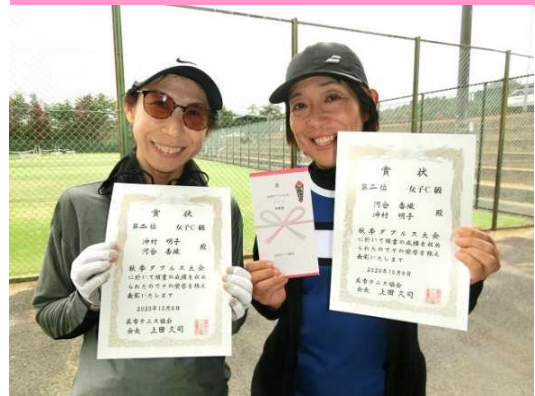 賞 状
第二位 女子C級
沖村 明子
河合 香織 殿
秋季ダブルス大会
に於いて頭書の成績を収め
られたのでその栄誉を称え
表彰いたします
2020年10月8日
呉市テニス協会
会長 上田 久司
賞 状
第二位 女子C級
河合 香織
沖村 明子 殿
秋季ダブルス大会
に於いて頭書の成績を収め
られたのでその栄誉を称え
表彰いたします
2020年10月8日
呉市テニス協会
会長 上田 久司